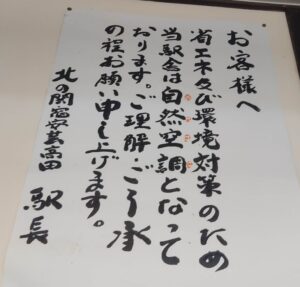 お客様へ
省エネ及び環境対策のため
当駅舎は自然空調となって
おります。ご理解・ご了承
の程お願い申し上げます。
北の関宿安芸高田 駅長